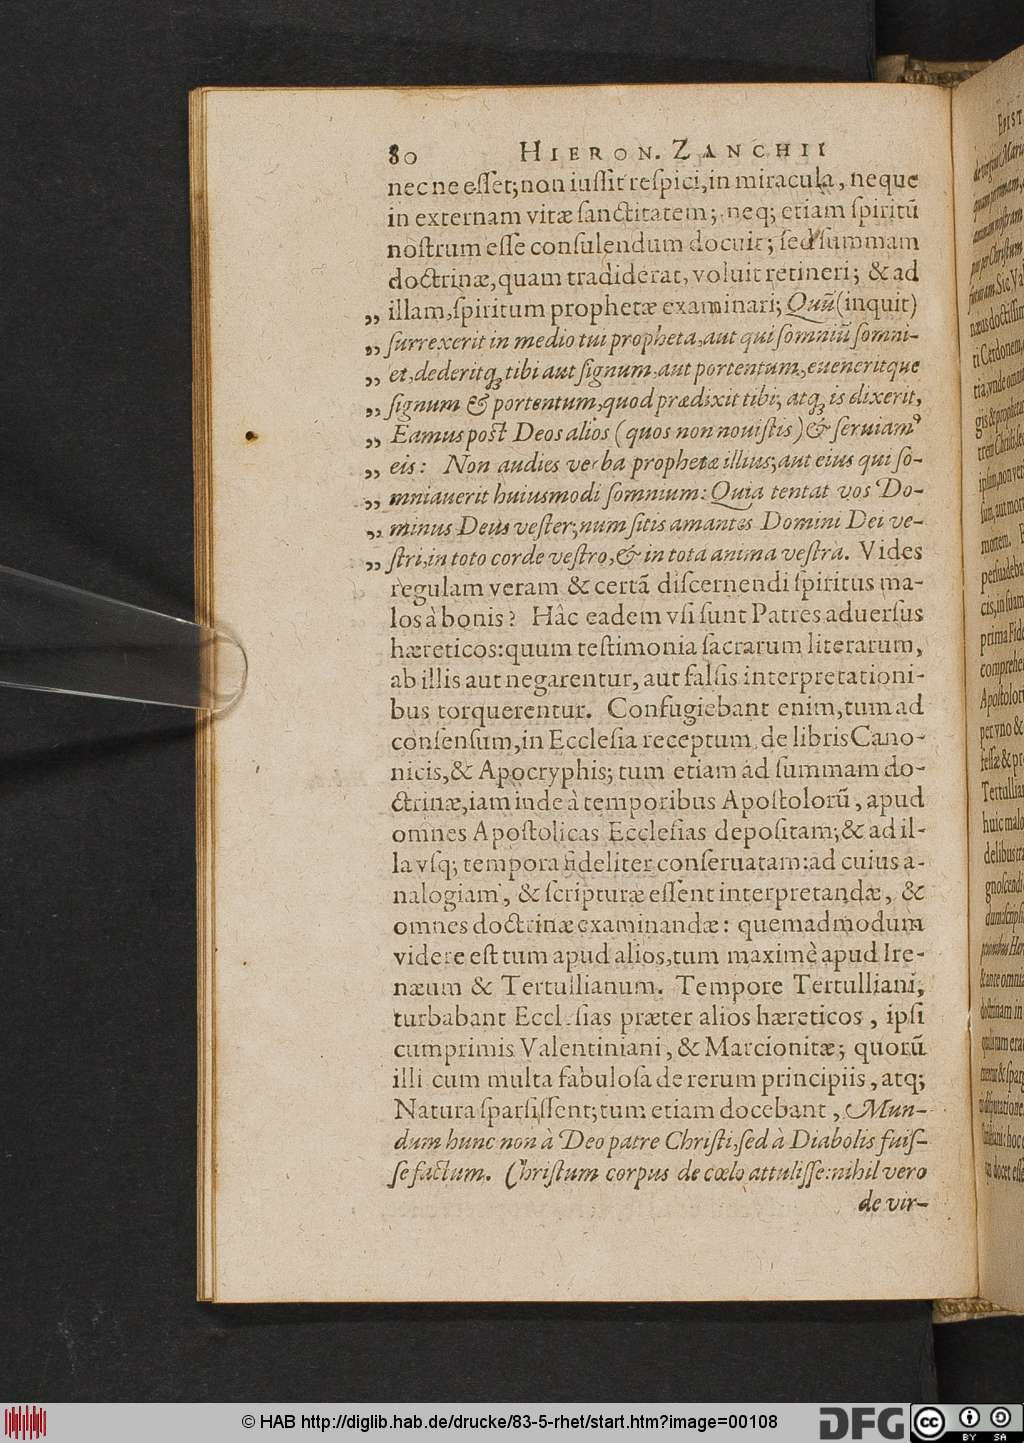 80 HIERON. ZANCHII
nec ne esset; non iussit respici, in miracula, neque
in externam vitæ sanctitatem; neq; etiam spiritū
nostrum esse consulendum docuit; sed summam
doctrinæ, quam tradiderat, voluit retineri; & ad
„ illam, spiritum prophetæ examinari; Quū (inquit)
„ surrexerit in medio tui propheta, aut qui somniū somni-
„ et, dederitq; tibi aut signum, aut portentum, eueneritque
„ signum & portentum, quod prædixit tibi, atq; is dixerit,
„ Eamus post Deos alios (quos non nouistis) & seruiamꝰ
„ eis: Non audies verba prophetæ illius; aut eius qui so-
„ mniauerit huiusmodi somnium: Quia tentat vos Do-
„ minus Deus vester; num sitis amantes Domini Dei ve-
„ stri, in toto corde vestro, & in tota anima vestra. Vides
regulam veram & certā discernendi spiritus ma-
los à bonis? Hâc eadem vsi sunt Patres aduersus
hæreticos: quum testimonia sacrarum literarum,
ab illis aut negarentur, aut falsis interpretationi-
bus torquerentur. Confugiebant enim, tum ad
consensum, in Ecclesia receptum, de libris Cano-
nicis, & Apocryphis; tum etiam ad summam do-
ctrinæ, iam inde à temporibus Apostolorū, apud
omnes Apostolicas Ecclesias depositam; & ad il-
la vsq; tempora fideliter conseruatam: ad cuius a-
nalogiam, & scripturæ essent interpretandæ, &
omnes doctrinæ examinandæ: quemadmodum
videre est tum apud alios, tum maximè apud Ire-
næum & Tertullianum. Tempore Tertulliani,
turbabant Ecclesias præter alios hæreticos, ipsi
cumprimis Valentiniani, & Marcionitæ; quorū
illi cum multa fabulosa de rerum principiis, atq;
Natura sparsissent; tum etiam docebant, Mun-
dum hunc non à Deo patre Christi, sed à Diabolis fuis-
se factum. Christum corpus de cœlo attulisse: nihil vero
de vir-
© HAB http://diglib.hab.de/drucke/83-5-rhet/start.htm?image=00108
DFG
cc BY SA